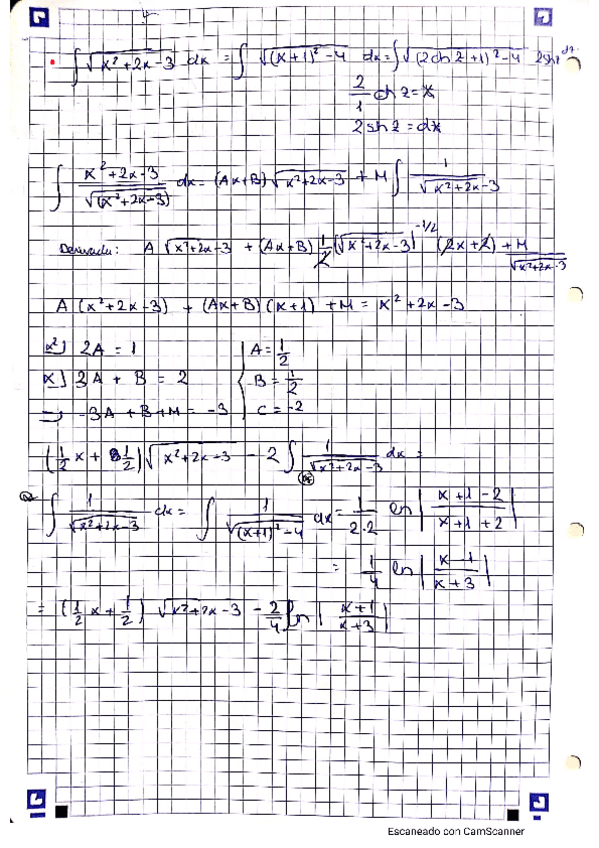 ∫ √(x² + 2x - 3) dx = ∫ √((x+1)² - 4) dx = ∫ √((2ch z + 1)² - 4) 2sh z dz
2/1 ch z = x
2 sh z = dx
∫ (x² + 2x - 3)/√(x² + 2x - 3) dx = (Ax + B) √(x² + 2x - 3) + M ∫ 1/√(x² + 2x - 3)
Derivada: A √(x² + 2x - 3) + (Ax + B) 1/2 (√(x² + 2x - 3))^(-1/2) (2x + 2) + M/√(x² + 2x - 3)
A (x² + 2x - 3) + (Ax + B)(x + 1) + M = x² + 2x - 3
x²) 2A = 1 A = 1/2
x) 3A + B = 2 B = 1/2
=) -3A + B + M = -3 C = -2
(1/2 x + 1/2) √(x² + 2x - 3) - 2 ∫ 1/√(x² + 2x - 3) dx =
∫ 1/√(x² + 2x - 3) dx = ∫ 1/√((x+1)² - 4) dx = 1/(2·2) ln |(x + 1 - 2)/(x + 1 + 2)|
= 1/4 ln |(x - 1)/(x + 3)|
= (1/2 x + 1/2) √(x² + 2x - 3) - 2/4 ln |(x + 1)/(x + 3)|
Escaneado con CamScanner